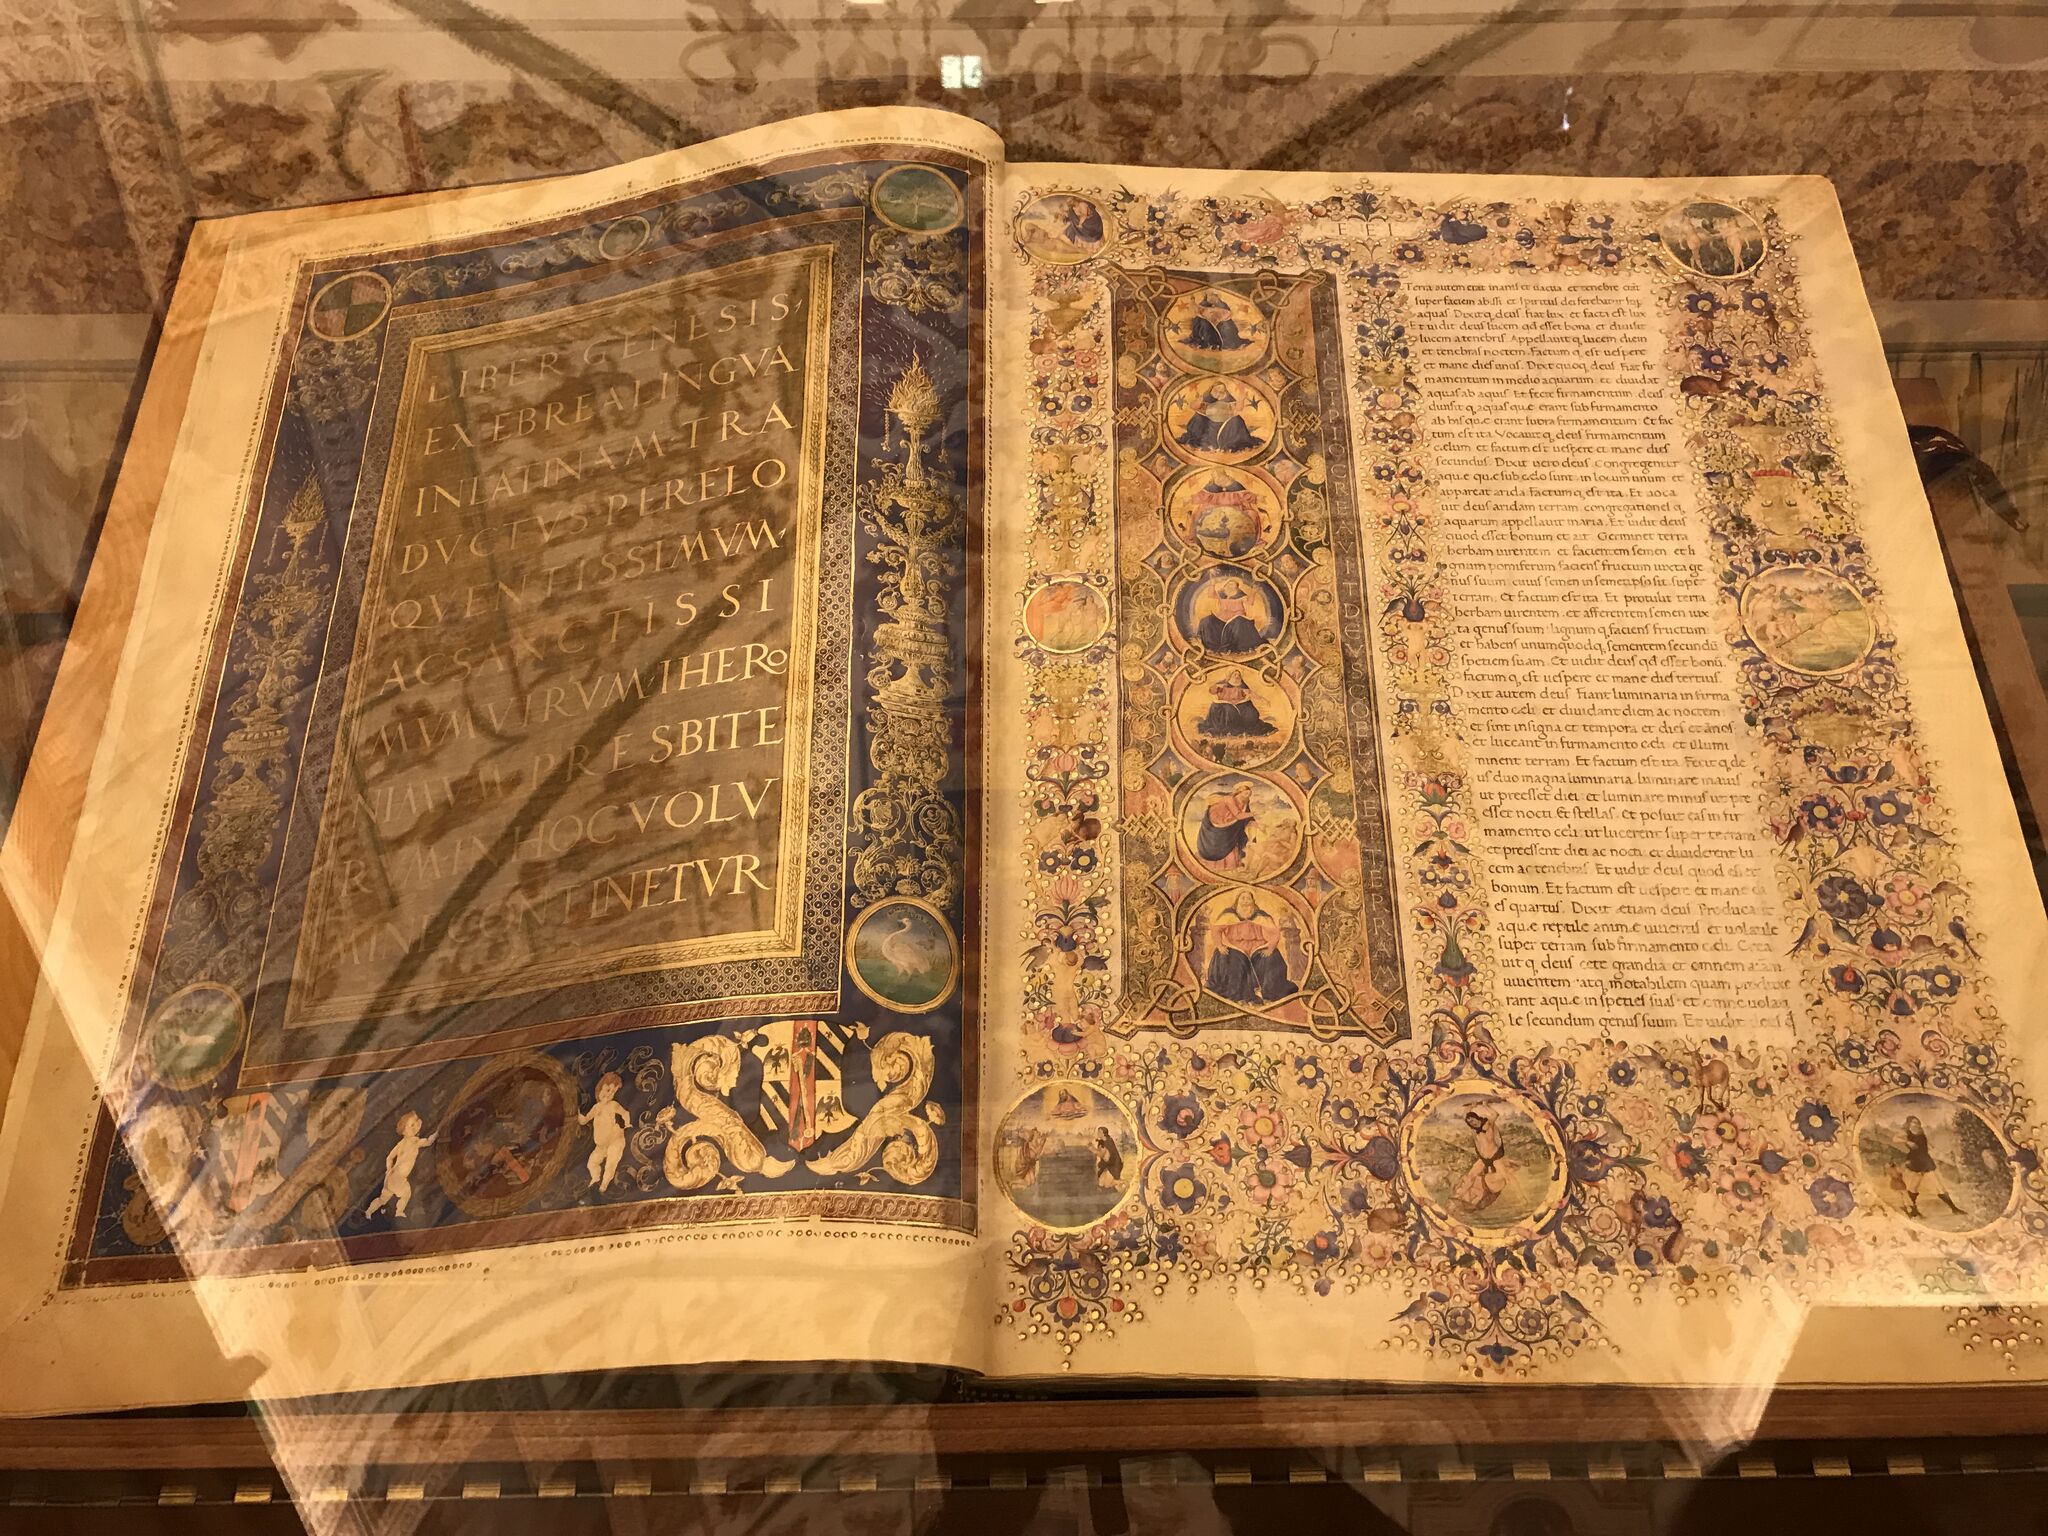 LIBER GENESIS
EX EBREA LINGVA
IN LATINAM TRA
DVCTVS PER ELO
QVENTISSIMVM
AC SANCTISSI
MVM VIRVM IHERO
NIMVM PRESBITE
RVM IN HOC VOLV
MINE CONTINETVR
Terra autem erat inanis et uacua et tenebre erāt
super faciem abissi et spiritus dei ferebatur sup
aquas. Dixitq, deus fiat lux et facta est lux
Et uidit deus lucem qd esset bona et diuisit
lucem a tenebris. Appellauit q, lucem diem
et tenebras noctem. Factum q, est uespere
et mane dies unus. Dixit quoq, deus Fiat fir
mamentum in medio aquarum et diuidat
aquas ab aquis Et fecit firmamentum deus
diuisit q, aquas que erant sub firmamento
ab his que erant supra firmamentum Et fac
tum est ita Vocauit q, deus firmamentum
celum et factum est uespere et mane dies
secundus. Dixit uero deus Congregentur
aque que sub celo sunt in locum unum et
appareat arida Factum q, est ita. Et uoca
uit deus aridam terram congregationes q,
aquarum appellauit maria. Et uidit deus
quod esset bonum et ait Germinet terra
herbam uirentem et facientem semen et li
gnum pomiferum faciens fructum iuxta ge
nus suum cuius semen in semetipso sit super
terram. Et factum est ita Et protulit terra
herbam uirentem et afferentem semen iux
ta genus suum lignum q, faciens fructum
et habens unumquodq, sementem secundū
speciem suam. Et uidit deus qd esset bonū.
factum q, est uespere et mane dies tertius.
Dixit autem deus Fiant luminaria in firma
mento celi et diuidant diem ac noctem
et sint in signa et tempora et dies et ānos
et luceant in firmamento celi et illumi
minent terram. Et factum est ita. Fecit q, de
us duo magna luminaria luminare maius
ut preesset diei et luminare minus ut pre
esset nocti Et stellas. Et posuit eas in fir
mamento celi ut lucerent super terram
et preessent diei ac nocti et diuiderent lu
cem ac tenebras. Et uidit deus quod esset
bonum. Et factum est uespere et mane di
es quartus. Dixit etiam deus Producant
aque reptile anime uiuentis et uolatile
super terram sub firmamento celi Crea
uit q, deus cete grandia et omnem aīam
uiuentem atq, motabilem quam produxe
rant aque in species suas et omne uolati
le secundum genus suum. Et uidit deus q